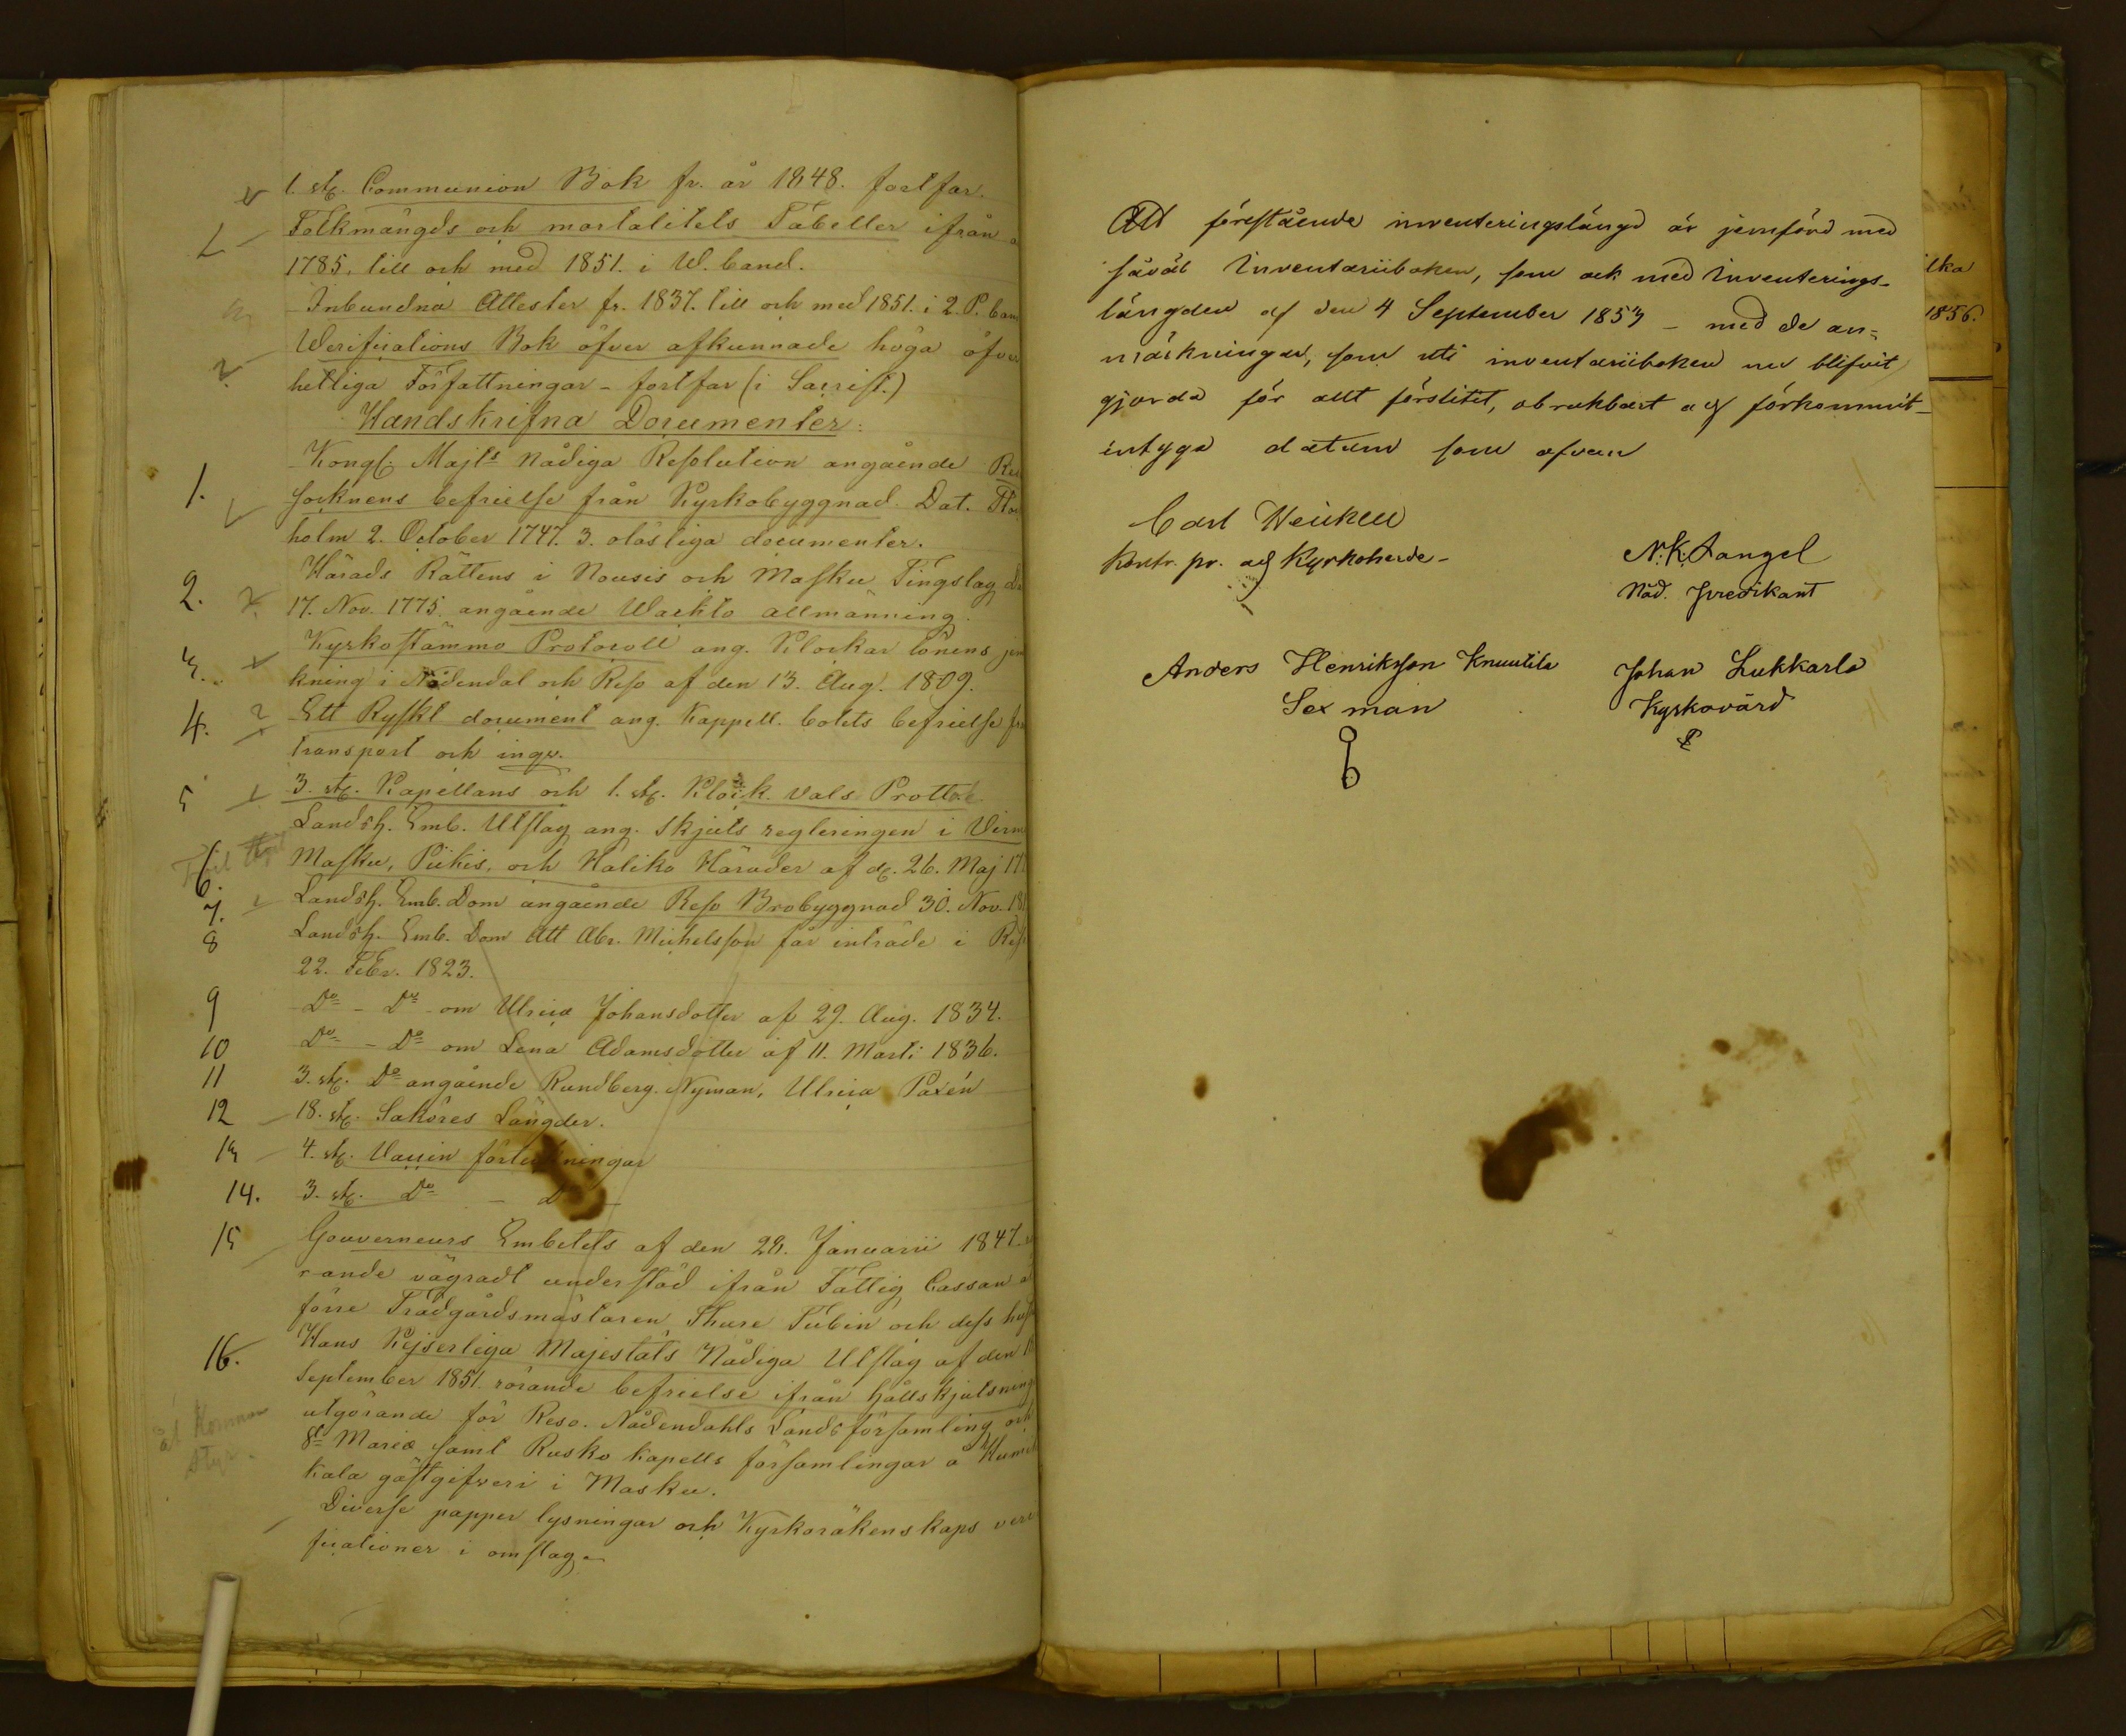 1. st. Communion Bok fr. år 1848. fortfar.
Folkmängds och mortalitets Tabeller ifrån
1785. till och med 1851. i W. band.
Inbundna Attester fr. 1837. till och med 1851. i 2. P. ban
Werifications Bok öfver afkunnade höga öfver
hetliga Författningar - fortfar (i Sacrist.)
Handskrifna Documenter:
1. Kongl. Majts Nådiga Resolution angående
socknens befrielse från Kyrkobyggnad. Dat. Stock
holm 2. October 1747. 3. olösliga documenter.
2. Härads Rättens i Nousis och Masku Tingslag
17. Nov. 1775. angående Waikto allmänning.
3. Kyrkostämmo Protocoll ang. Klockar lönens jem
kning i Nådendal och Reso af den 13. Aug. 1809.
4. Ett Ryskt document ang. Kappell. bolets befrielse
transport och ingv.
5 3. st. Kapellans och 1. st. Klock. vals Prott.
Landsh. Emb. Utslag ang. skjuts regleringen i
6. Masku, Pikis, och Haliko Härader af d. 26. Maj
7. Landsh. Emb. Dom angående Reso Brobyggnad 30. Nov.
8 Landsh. Emb. Dom att Abr. Michelsson får inträde i
22. Febr. 1823.
9 Do - Do om Ulrica Johansdotter af 29. Aug. 1834.
10 Do - Do om Lena Adamsdotter af 11. Marti 1836.
11 3. st. Do angående Rundberg. Nyman, Ulrica Paxén
12 18. st. Saköres Längder.
13 4. st. Vaccin förteckningar
14. 3. st. Do - Do
15 Gouverneurs Embetets af den 28. Januarii 1847
rande vägradt understöd ifrån Fattig Cassan
förre Trädgårdsmästaren Thure Tubin och dess
16. Hans Kejserliga Majestäts Nådiga Utslag af den
September 1851. rörande befrielse ifrån hållskjutsning
utgörande för Reso. Nådendahls Landsförsamling och
St Mariæ samt Rusko kapells församlingar å
kala gästgifveri i Masku.
åt Kommun
styr.
Diverse papper lysningar och Kyrkoräkenskaps veri
ficationer i omslag.
Att förestående inventeringslängd är jemförd med
såväl Inventariiboken, som ock med Inventerings-
längden af den 4 September 1853 - med de an=
märkningar, som uti inventariiboken nu blifvit
gjorda för allt förslitet, obrukbart och förkommit -
intyga datum som ofvan
Carl Weikell
Kontr. pr. och Kyrkoherde -
N. K. Tangel
Nåd. predikant
Anders Henriksson Knuutila
Sexman
Johan Lukkarla
Kyrkovärd
lka
1856.